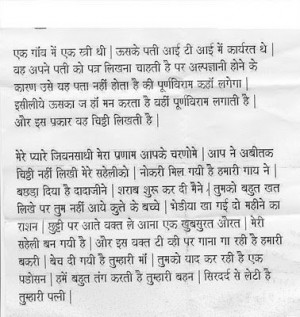 एक गाँव में एक स्त्री थी | ऊसके पती आई टी आई में कार्यरत थे |
वह अपने पती को पत्र लिखना चाहती है पर अल्पज्ञानी होने के
कारण उसे यह पता नहीं होता है की पूर्णविराम कहॉ लगेगा |
इसीलीये ऊसका ज हॉ मन करता है वहीं पूर्णविराम लगाती है |
और इस प्रकार वह चिठ्ठी लिखती है |
मेरे प्यारे जिवनसाथी मेरा प्रणाम आपके चरणोमे | आप ने अबीतक
चिठ्ठी नहीं लिखी मेरे सहेलीको | नोकरी मिल गयी है हमारी गाय ने |
बछडा दिया है दादाजीने | शराब शुरू कर दी मैने | तुमको बहुत खत
लिखे पर तुम नहीं आये कुत्ते के बच्चे | भेडीया खा गई दो महीने का
राशन | छुट्टी पर आते वक्त ले आना एक खुबसुरत औरत | मेरी
सहेली बन गयी है | और इस वक्त टी व्ही पर गाना गा रही है हमारी
बकरी | बेच दी गयी है तुम्हारी माँ | तुमको याद कर रही है एक
पडोसन | हमें बहुत तंग करती है तुम्हारी बहन | सिरदर्द से लेटी है
तुम्हारी पत्नी |